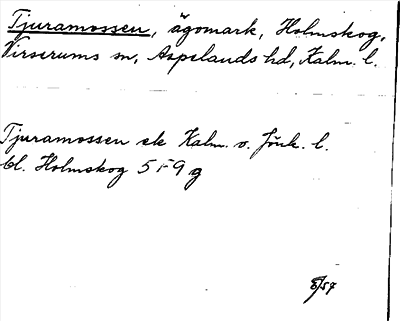 Tjuramossen, ägomark, Holmskog,
Virserums sn, Aspelands hd, Kalm. l.
Tjuramossen ek Kalm. o. Jönk. l.
bl. Holmskog 5 F 9 g